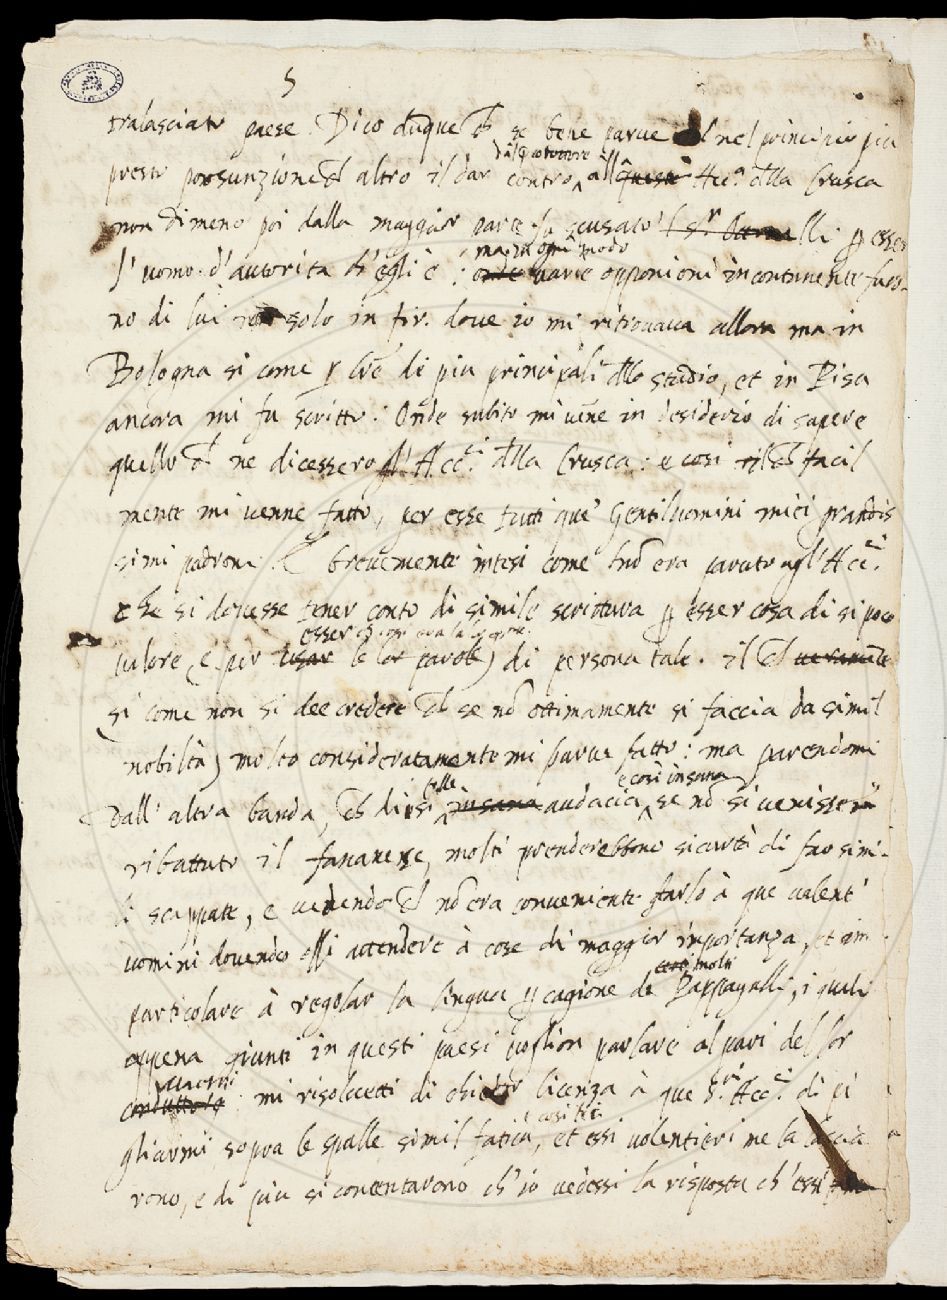 5
tralasciato paese. Dico dũque ch se bene parue nel principio piu
presto prosunzione ch altro il dar contro all' Acc.ª dlla Crusca
non dimeno poi dalla maggior parte fu scusato p esser
l' uomo d' autorita ch' egli è : ma in ogni modo
varie opponioni incontinente furo-
no di lui non solo in fir. dove io mi ritrovava allora ma in
Bologna si come p lrẽ di piu principali dllo studio, et in Pisa
ancora mi fu scritto: Onde subito mi vẽne in desiderio di sapere
quello ch ne dicessero gl' Acc.ci dlla Crusca: e così facil
mente mi venne fatto, per esse tutti que' Gentiluomini miei grandis
simi padroni. E brevemente intesi come nõ era paruto agl' Acc.ci
che si dovesse tener conto di simile scrittura p esser cosa di si poco
esser
valore (e per usar le lor parole) di persona tale. il ch veramẽte
si come non si dee credere ch se nõ ottimamente si faccia da simil
nobiltà) molto consideratamente mi parue fatto: ma parendomi
dall' altra banda, ch di si folle insana audacia e così insana se nõ si venisse
ributtuto il molti prenderebbono sicurtà di far simi-
li scappate, e vedendo ch nõ era conveniente farlo à que valenti
uomini dovendo essi attendere à cose di maggior importanza, et in
particolare à regolar la lingua p cagione de certi molti Pappagalli, i quali
appena giunti in questi paesi voglion parlare al pari del lor
mi risolvetti di chieder licenza à que S.ri Acc.ci di pi
gliarmi sopra le spalle simil fatica, et essi volentieri me la lascia
rono, e di piu si contentarono ch' io vedessi la risposta ch' essi